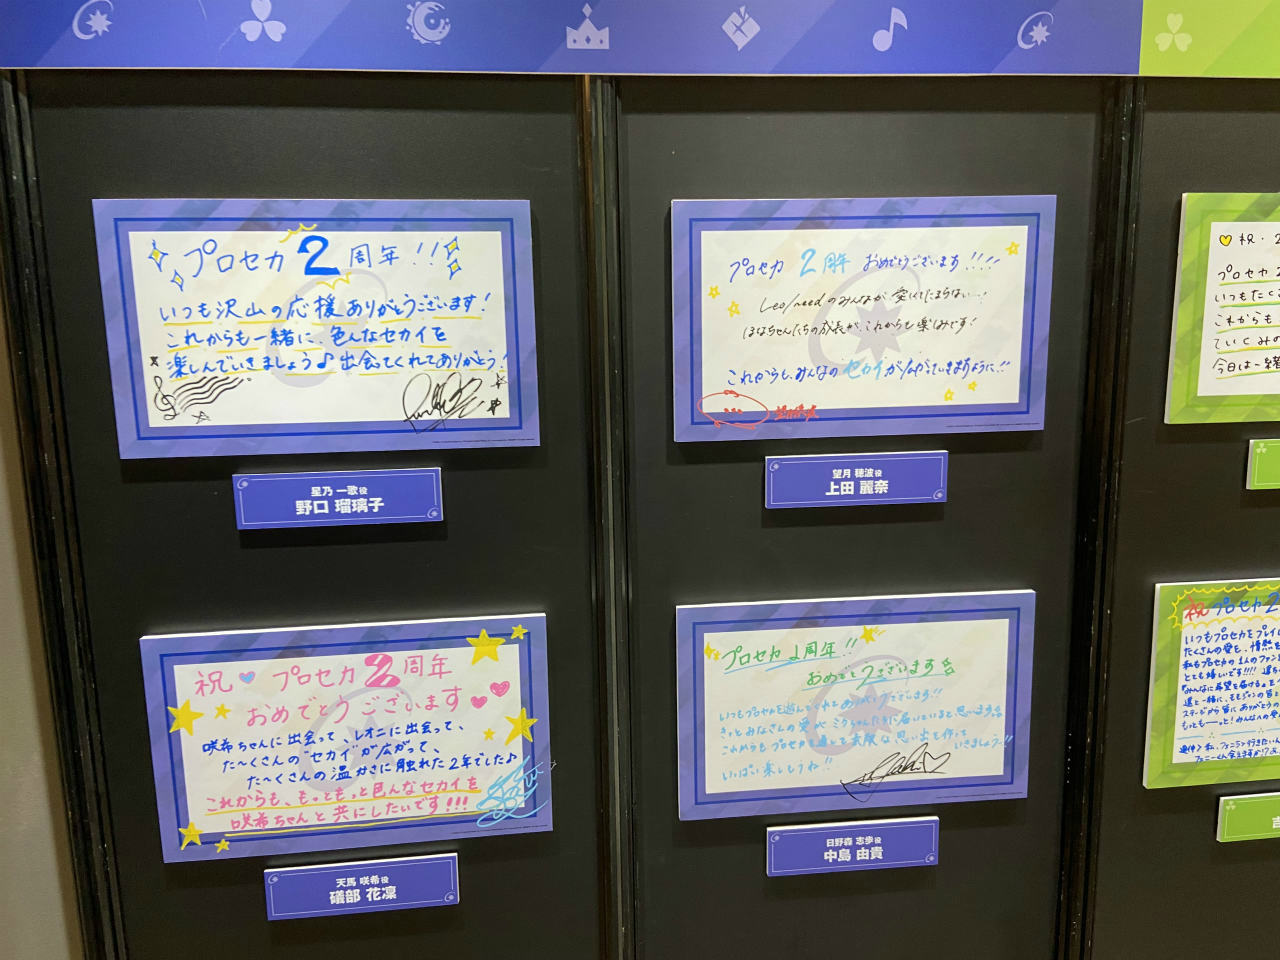 プロセカ2周年!!
いつも沢山の応援ありがとうございます!
これからも一緒に、色んなセカイを
楽しんでいきましょう♪出会ってくれてありがとう!
星乃 一歌役
野口 瑠璃子
プロセカ 2周年 おめでとうございます!!!!
Leo/needのみんなが 愛しくてたまらない…!
ほなちゃんたちの成長が、これからも楽しみです!
これからも、みんなの セカイが
望月 穂波役
上田 麗奈
祝 プロセカ2周年
おめでとうございます
咲希ちゃんに出会って、レオニに出会って、
た〜くさんの"セカイ"が広がって、
た〜くさんの温かさに触れた2年でした♪
これからも、もっともっと色んなセカイを
咲希ちゃんと共にしたいです!!!
天馬 咲希役
礒部 花凜
プロセカ2周年!!
おめでとうございます
いつもプロセカを遊んでくれてありがとうございます!!
きっとみなさんの愛が ミクちゃんたちに届いていると思います
これからも プロセカを通して素敵な思い出を作って
いきましょう!!
いっぱい楽しもうね!!
日野森 志歩役
中島 由貴
祝・2
プロセカ
いつもたく
これからも
ていくみの
今日は一緒
祝 プロセカ2
いつもプロセカをプレイ
たくさんの愛を、情熱を
私もプロセカの1人のファン
とても嬉しいです!!!!
『みんなに希望を届ける』を
遥と一緒に、モモジャンの皆と
ステージから皆に、ありがとうの
もっともーーっと!みんなへの愛